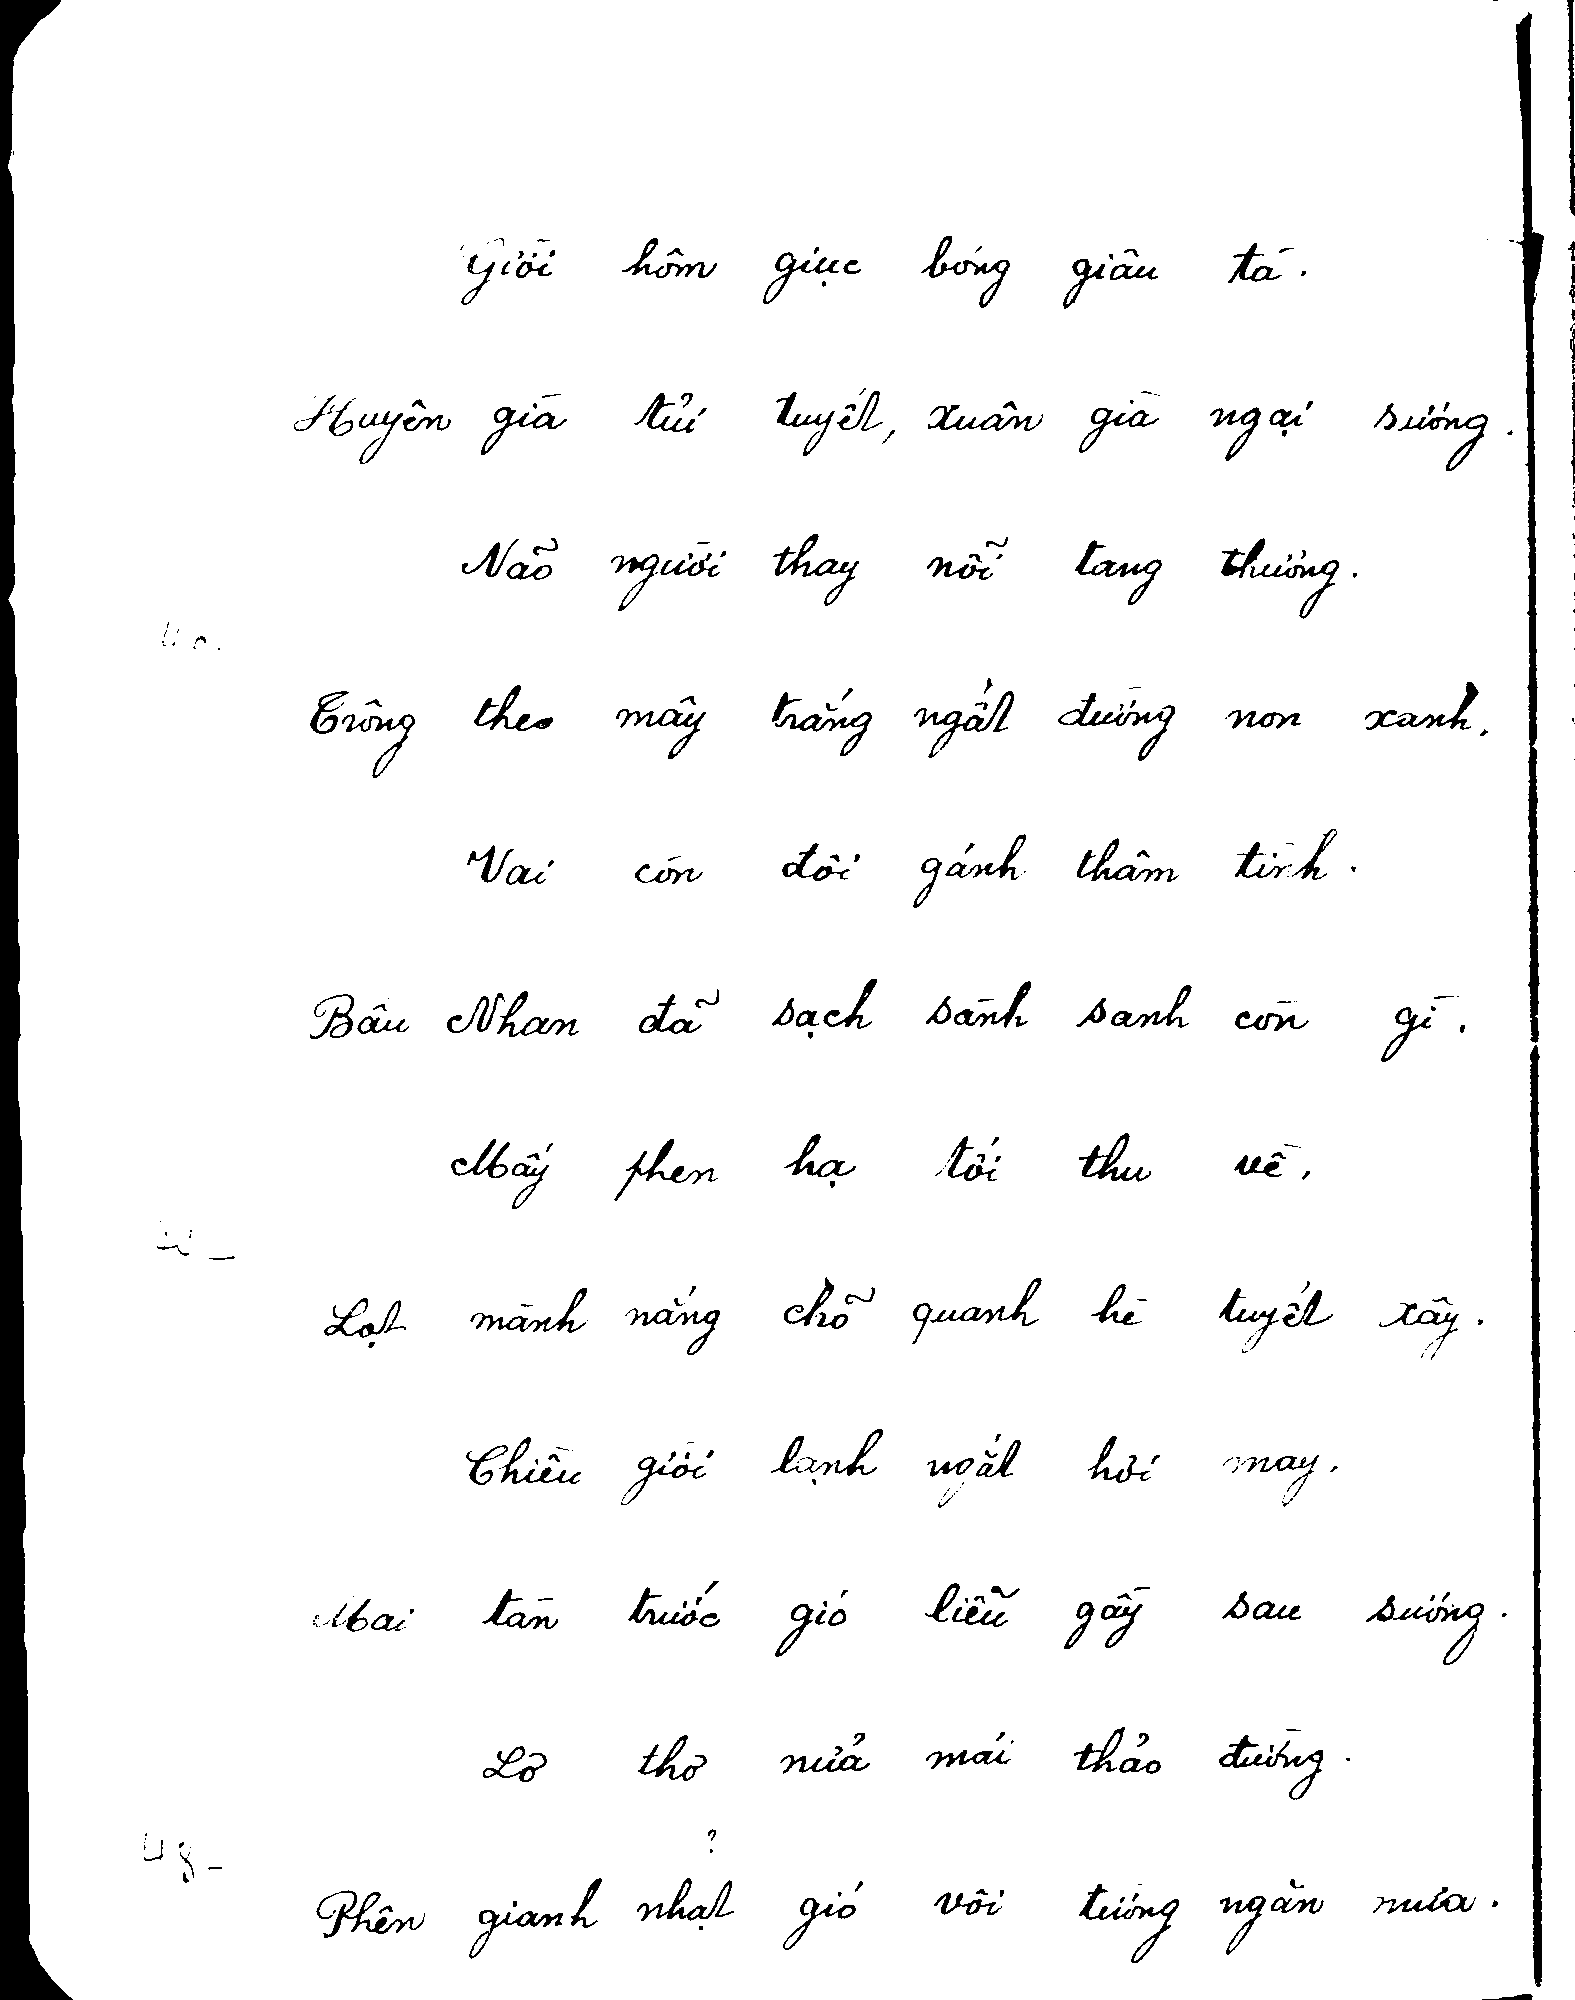 Giời hôm giục bóng giâu tà.
Huyên già tủi tuyết, xuân già ngại sương.
Não người thay nỗi tang thương.
Trông theo mây trắng ngất đường non xanh.
Vai còn đôi gánh thâm tình.
Bầu Nhan đã sạch sành sanh còn gì.
Mấy phen hạ tới thu về.
Lọt mành nắng chỗ quanh hè tuyết xây.
Chiều giời lạnh ngắt hơi may.
Mai tàn trước gió liễu gầy sau sương.
Lơ thơ nửa mái thảo đường.
48-
?
Phên gianh nhạt gió vôi tường ngăn mưa.